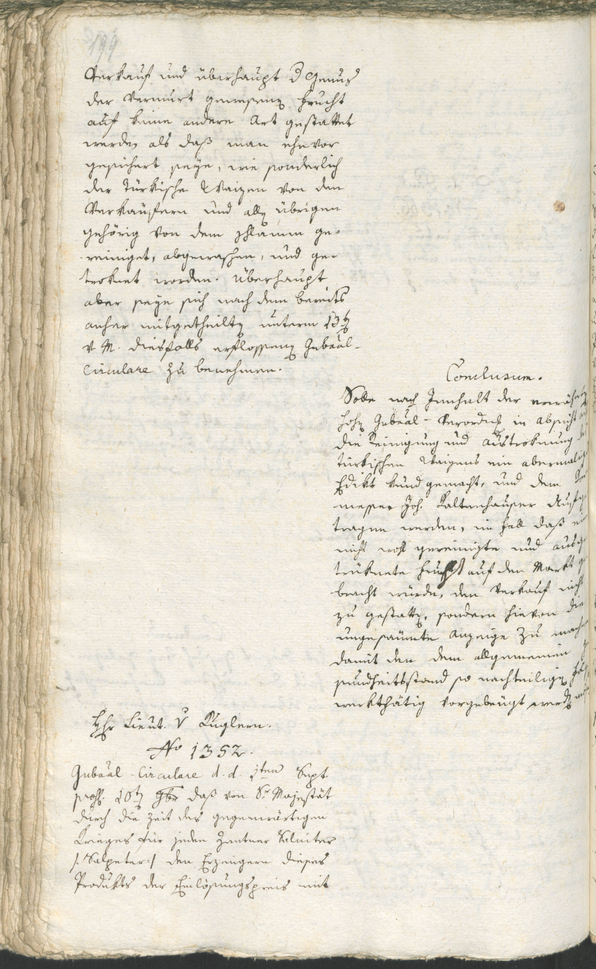 199
Verkauf und überhaupt d Genuß
der vermurt gewesenen Frucht
auf keine andere Art gestattet
werde, als daß man ehevor
gesichert seye, wie sonderlich
der Türkische Waizen von den
Verkäufern und alle übrigen
gehörig von dem Schlamm ge-
reiniget, abgewaschen, und ge-
troknet worden. Überhaupt
aber seye sich nach dem bereits
anher mitgetheilten unterm 13t
v. M. diesfalls erflossenen Gubeal-
Circulare zu benehmen.
Conclusum.
Solle nach Innhalt der
hohen Gubeal-Verordn in absicht
die Reinigung und Austroknung
türkischen Waizens ein abermalig
Edikt kund gemacht, und dem
messer Joh. Kaltenhauser
tragen werden, im Fall daß
nicht wohl gereinigte und
trüknete Frucht auf den Markt
bracht würde, den Verkauf nicht
zu gestatten, sondern hievon die
ungesäumte Anzeige zu machen
damit den dem allgemeinen
sundheitsstand so nachteilige
werkthätig vorgebeugt werde
Hr Lieut. v Kuglern.
No 1352.
Gubeal-Circulare d. d. 1ten Sept
praes. 10t daß von Sr Majestät
durch die Zeit des gegenwärtigen
Krieges für jeden Zentner Saliniter
/: Salpeter :/ den Erzeugern dieses
Produkts der Einlösungspreis mit